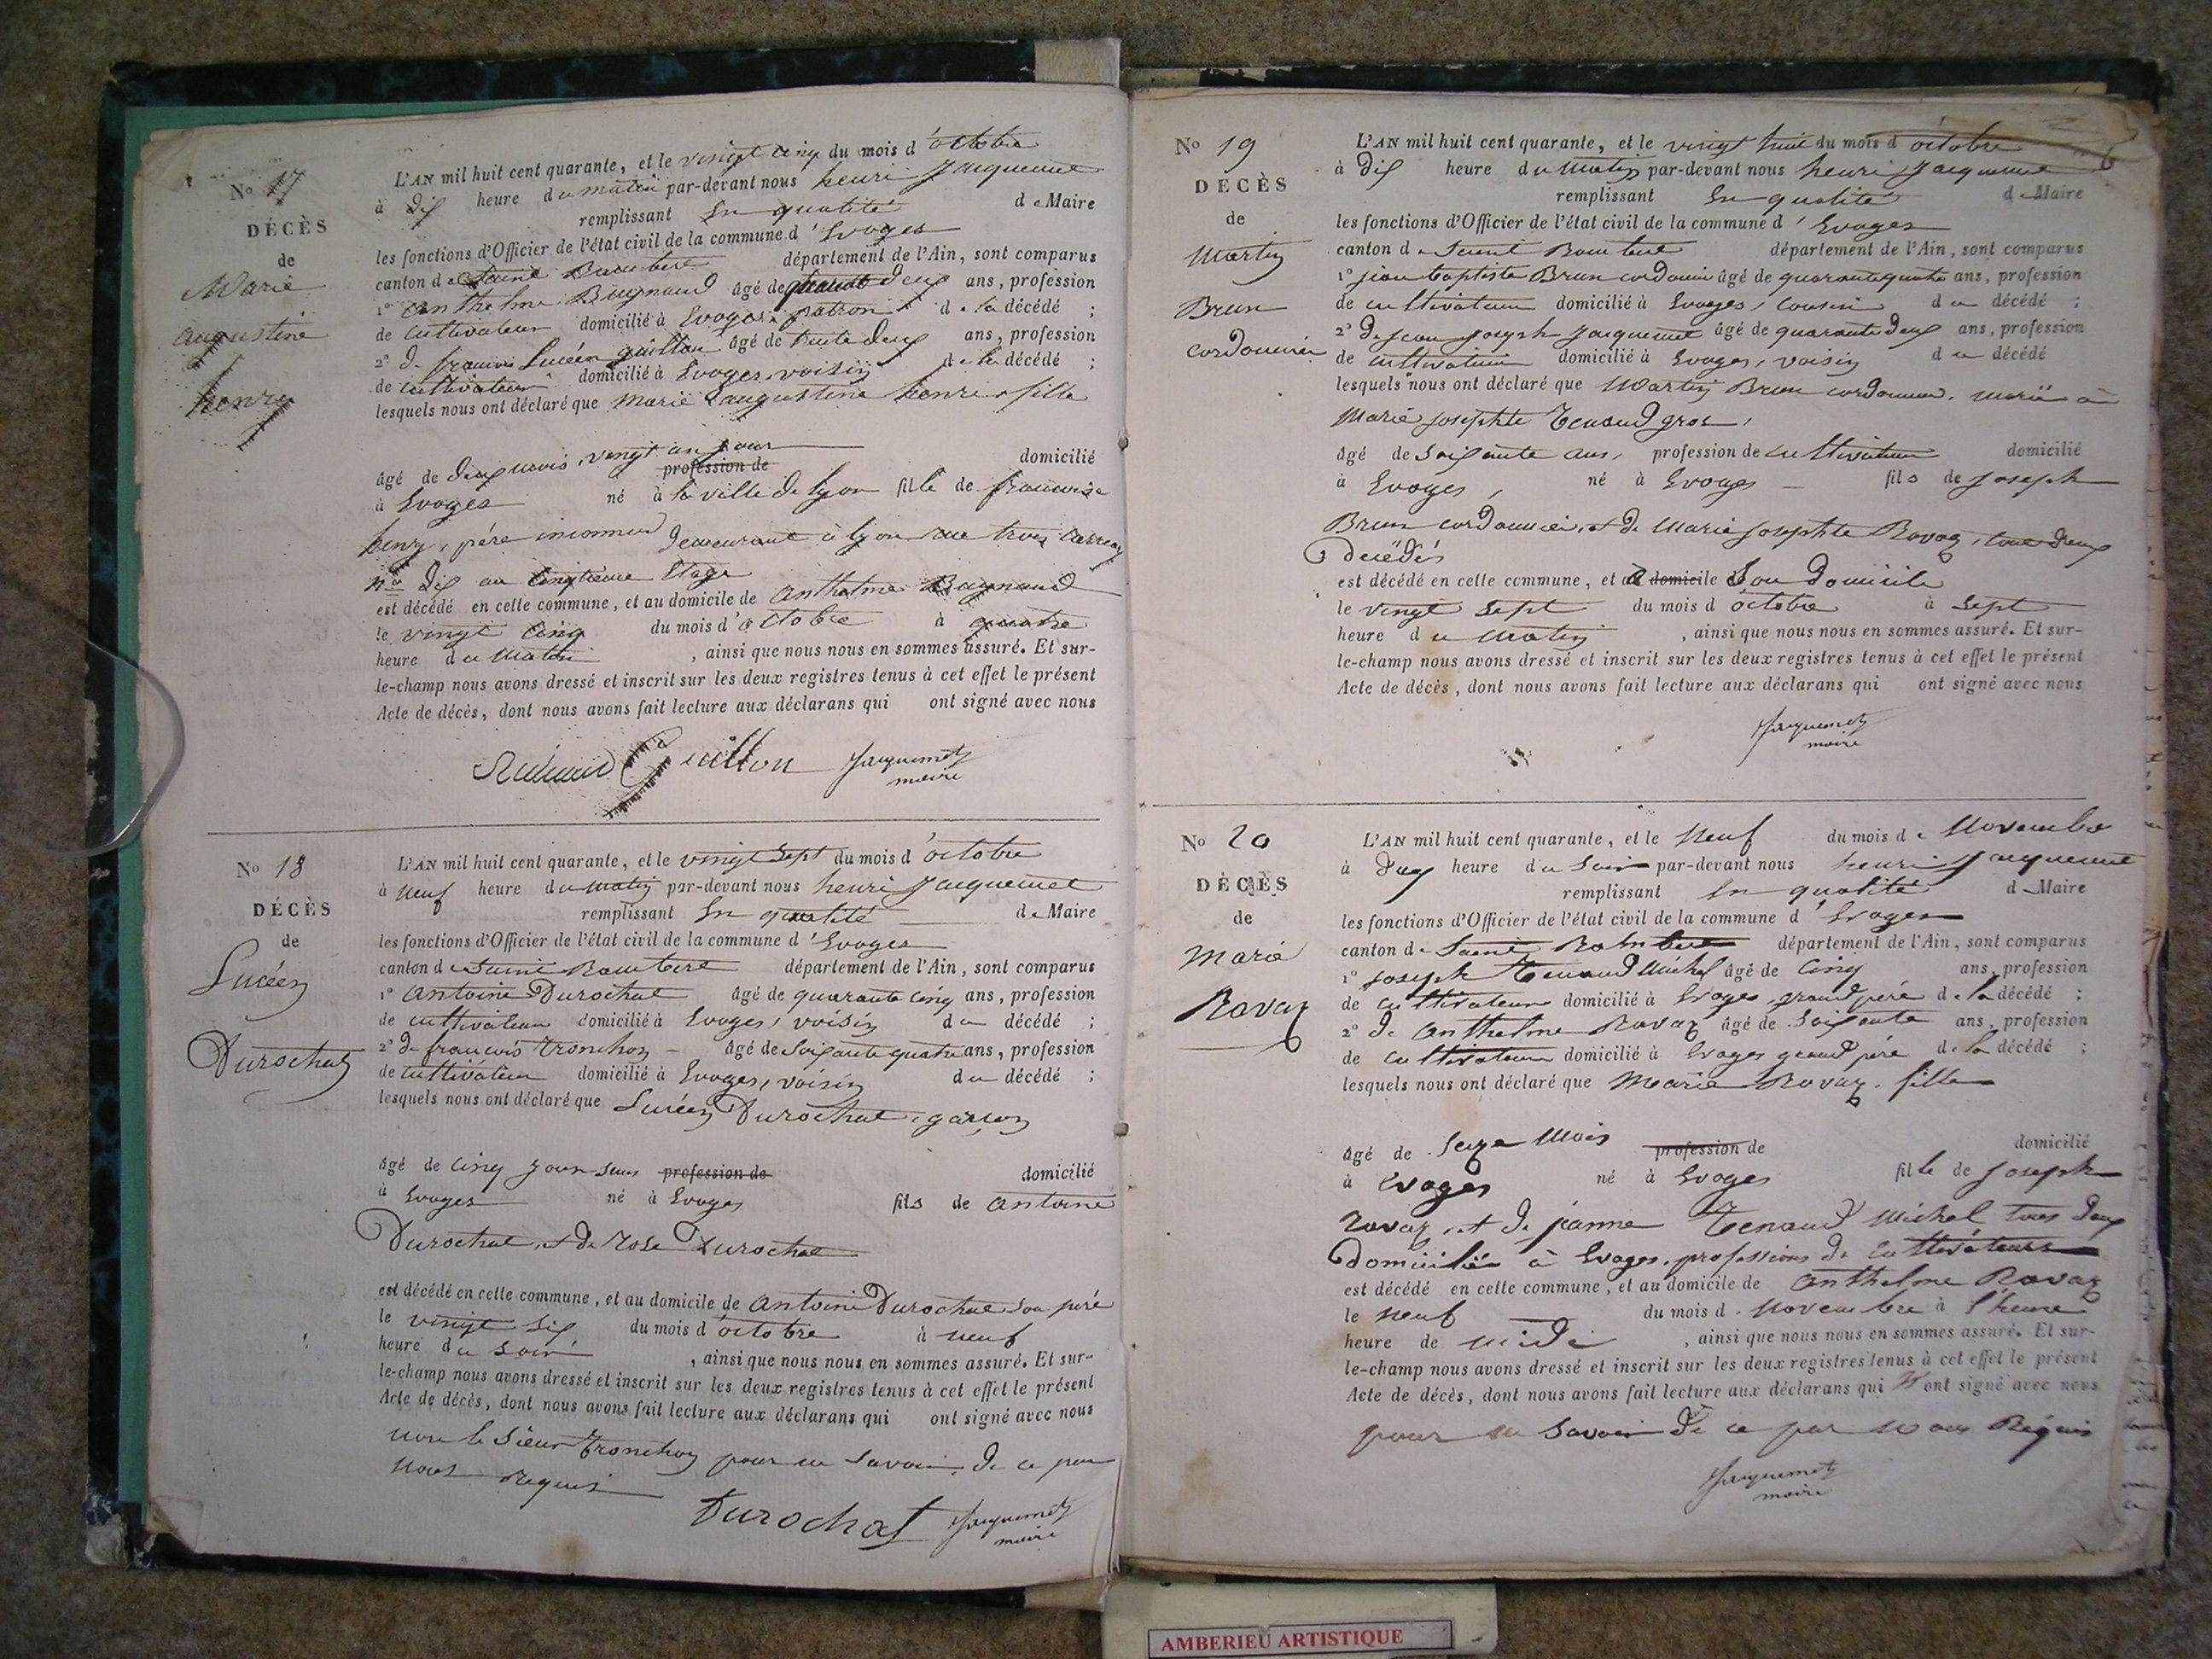 No 17
DÉCÈS
de
Marie
augustine
henry
L'AN mil huit cent quarante, et le vingt cinq du mois d'octobre
à dix heure du matin par-devant nous henri Jacquemet
remplissant En qualité de Maire
les fonctions d'Officier de l'état civil de la commune d'Evoges
canton de Saint Rambert département de l'Ain, sont comparus
1° anthelme Bugnaud âgé de deux ans, profession
de cultivateur domicilié à Evoges patron de la décédé ;
2° de francois Lucéen guillon âgé de trente deux ans, profession
de cultivateur domicilié à Evoges, voisin de la décédé ;
lesquels nous ont déclaré que marie augustine henri, fille
âgé de deux mois, vingt un jour profession de domicilié
à Evoges né à la ville de lyon fille de francoise
henry, père inconnu demeurant à lyon rue trois carreau
no dix au cinqtieme Etage
est décédé en celle commune, et au domicile de anthelme Bugnaud
le vingt cinq du mois d'octobre à quatre
heure du matin, ainsi que nous nous en sommes assuré. Et sur-
le-champ nous avons dressé et inscrit sur les deux registres tenus à cet effet le présent
Acte de décès, dont nous avons fait lecture aux déclarans qui ont signé avec nous
Guillon Jacquemet
maire
No 18
DÉCÈS
de
Lucéen
Durochat
L'AN mil huit cent quarante, et le vingt sept du mois d'octobre
à neuf heure du matin par-devant nous henri Jacquemet
remplissant En qualité de Maire
les fonctions d'Officier de l'état civil de la commune d'Evoges
canton de Saint Rambert département de l'Ain, sont comparus
1° Antoine Durochat âgé de quarante cinq ans, profession
de cultivateur domicilié à Evoges, voisin du décédé ;
2° de francois tronchon âgé de soixante quatre ans, profession
de cultivateur domicilié à Evoges, voisin du décédé ;
lesquels nous ont déclaré que Lucéen Durochat, garçon
âgé de cinq jours sans profession de domicilié
à Evoges né à Evoges fils de antoine
Durochat, et de rose Durochat
est décédé en celle commune, et au domicile de antoine Durochat son père
le vingt six du mois d'octobre à neuf
heure du soir, ainsi que nous nous en sommes assuré. Et sur-
le-champ nous avons dressé et inscrit sur les deux registres tenus à cet effet le présent
Acte de décès, dont nous avons fait lecture aux déclarans qui ont signé avec nous
non le sieur tronchon pour ne savoir, de ce par
nous requis
Durochat Jacquemet
maire
No 19
DÉCÈS
de
Martin
Brun
cordonnier
L'AN mil huit cent quarante, et le vingt huit du mois d'octobre
à dix heure du matin par-devant nous henri Jacquemet
remplissant En qualité de Maire
les fonctions d'Officier de l'état civil de la commune d'Evoges
canton de Saint Rambert département de l'Ain, sont comparus
1° jean baptiste Brun cordonnier âgé de quarante quatre ans, profession
de cultivateur domicilié à Evoges, cousin du décédé ;
2° de jean joseph jacquemet âgé de quarante deux ans, profession
de cultivateur domicilié à Evoges, voisin du décédé
lesquels nous ont déclaré que Martin Brun cordonnier, marié à
Marie josephte Tenand gros,
âgé de soixante ans, profession de cultivateur domicilié
à Evoges, né à Evoges fils de joseph
Brun cordonnier, et de Marie josephte Ravaz, tous deux
décédés
est décédé en celle commune, et au domicile Son domicile
le vingt sept du mois d'octobre à sept
heure du matin, ainsi que nous nous en sommes assuré. Et sur-
le-champ nous avons dressé et inscrit sur les deux registres tenus à cet effet le présent
Acte de décès, dont nous avons fait lecture aux déclarans qui ont signé avec nous
Jacquemet
maire
No 20
DÉCÈS
de
Marie
Ravaz
L'AN mil huit cent quarante, et le neuf du mois de Novembre
à deux heure du soir par-devant nous henri Jacquemet
remplissant En qualité de Maire
les fonctions d'Officier de l'état civil de la commune d'Evoges
canton de Saint Rambert département de l'Ain, sont comparus
1° joseph Tenand Michel âgé de cinq ans, profession
de cultivateur domicilié à Evoges, grand père de la décédé ;
2° de Anthelme Ravaz âgé de soixante ans, profession
de cultivateur domicilié à Evoges grand père de la décédé ;
lesquels nous ont déclaré que Marie Ravaz, fille
âgé de seize mois profession de domicilié
à Evoges né à Evoges fille de joseph
ravaz, et de jeanne Tenand Michel tous deux
domiciliés à Evoges, professions de cultivateurs
est décédé en celle commune, et au domicile de anthelme Ravaz
le neuf du mois de Novembre à l'heure
heure de midi, ainsi que nous nous en sommes assuré. Et sur-
le-champ nous avons dressé et inscrit sur les deux registres tenus à cet effet le présent
Acte de décès, dont nous avons fait lecture aux déclarans qui n'ont signé avec nous
pour ne savoir de ce par nous Réquis
Jacquemet
maire
AMBERIEU ARTISTIQUE